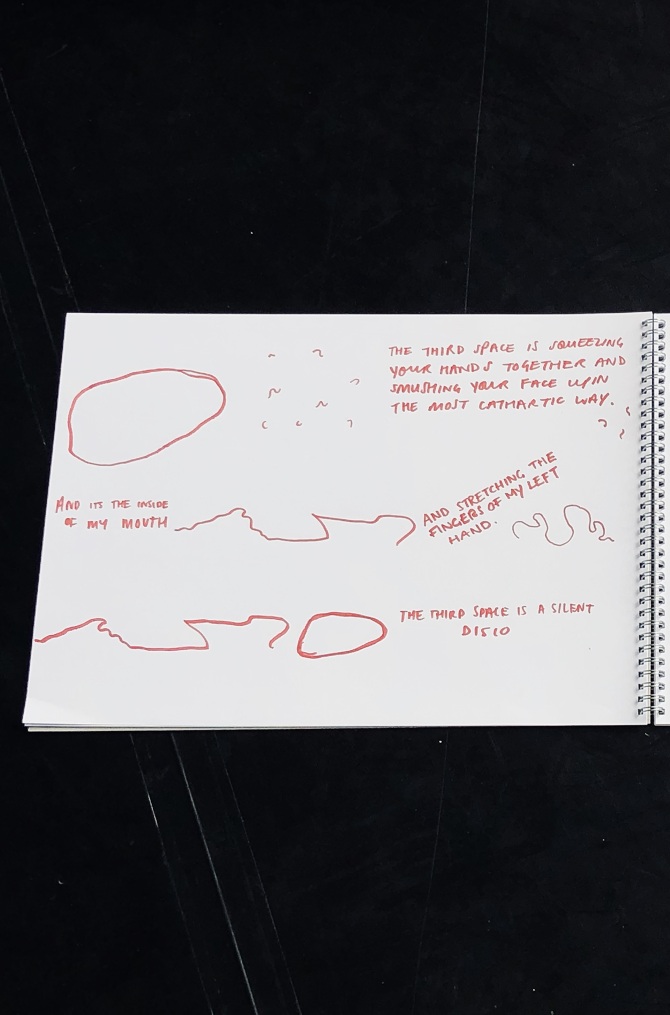 THE THIRD SPACE IS SQUEEZING
YOUR HANDS TOGETHER AND
SMUSHING YOUR FACE UP IN
THE MOST CATHARTIC WAY.
AND ITS THE INSIDE
OF MY MOUTH
AND STRETCHING THE
FINGERS OF MY LEFT
HAND.
THE THIRD SPACE IS A SILENT
DISCO